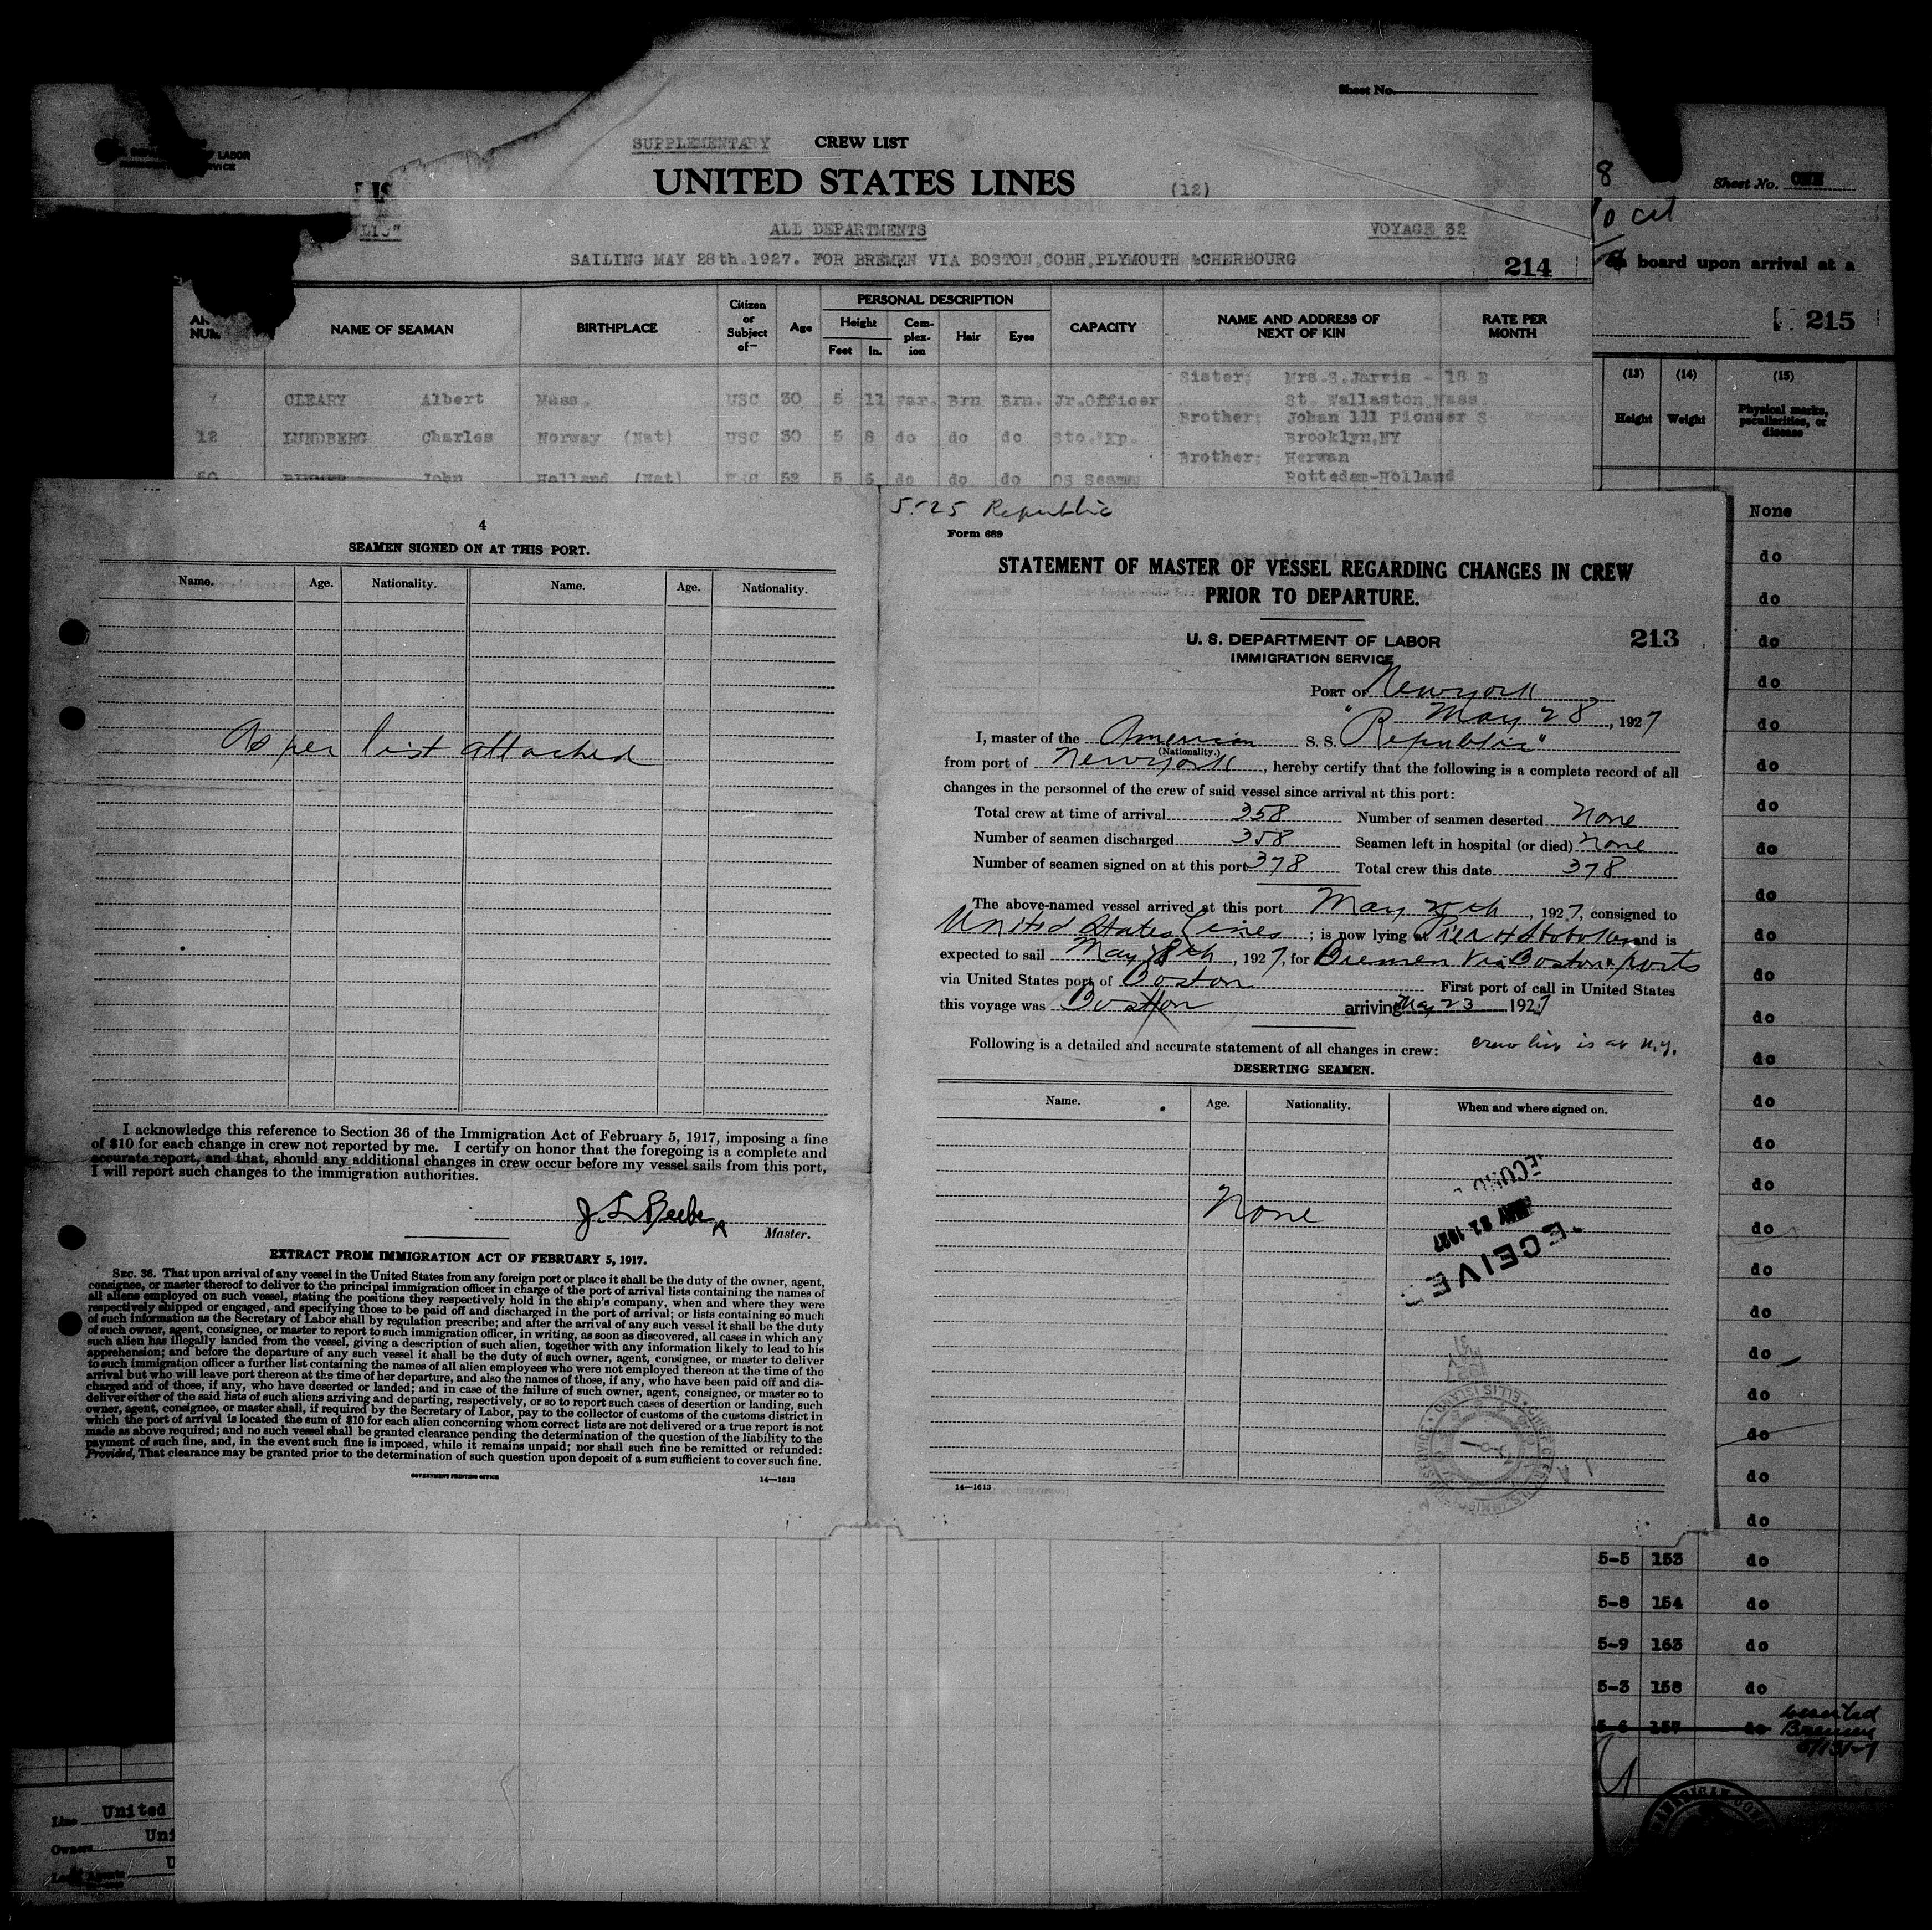 Sheet No.
SUPPLEMENTARY CREW LIST
UNITED STATES LINES (12)
ALL DEPARTMENTS VOYAGE 32
SAILING MAY 28th.1927. FOR BREMEN VIA BOSTON,COBH,PLYMOUTH &CHERBOURG
214
NAME OF SEAMAN BIRTHPLACE Citizen or Subject of— Age PERSONAL DESCRIPTION CAPACITY NAME AND ADDRESS OF NEXT OF KIN RATE PER MONTH
Height Feet In. Com-plex-ion Hair Eyes
Sister; Mrs.S.Jarvis - 18 E
CLEARY Albert Mass. USC 30 5 11 Far. Brn Brn. Jr.Officer St. Wallaston Mass.
Brother; Johan 111 Pioneer S
12 LUNDBERG Charles Norway (Nat) USC 30 5 8 do do do Sto. Kp. Brooklyn,NY
Brother; Herwan
John Holland (Nat) 52 5 6 do do do OS Seaman Rottedam-Holland
4
SEAMEN SIGNED ON AT THIS PORT.
Name. Age. Nationality. Name. Age. Nationality.
As per list attached
I acknowledge this reference to Section 36 of the Immigration Act of February 5, 1917, imposing a fine
of $10 for each change in crew not reported by me. I certify on honor that the foregoing is a complete and
accurate report, and that, should any additional changes in crew occur before my vessel sails from this port,
I will report such changes to the immigration authorities.
J. L. Beebe
Master.
EXTRACT FROM IMMIGRATION ACT OF FEBRUARY 5, 1917.
SEC. 36. That upon arrival of any vessel in the United States from any foreign port or place it shall be the duty of the owner, agent,
consignee, or master thereof to deliver to the principal immigration officer in charge of the port of arrival lists containing the names of
all aliens employed on such vessel, stating the positions they respectively hold in the ship's company, when and where they were
respectively shipped or engaged, and specifying those to be paid off and discharged in the port of arrival; or lists containing so much
of such information as the Secretary of Labor shall by regulation prescribe; and after the arrival of any such vessel it shall be the duty
of such owner, agent, consignee, or master to report to such immigration officer, in writing, as soon as discovered, all cases in which any
such alien has illegally landed from the vessel, giving a description of such alien, together with any information likely to lead to his
apprehension; and before the departure of any such vessel it shall be the duty of such owner, agent, consignee, or master to deliver
to such immigration officer a further list containing the names of all alien employees who were not employed thereon at the time of the
arrival but who will leave port thereon at the time of her departure, and also the names of those, if any, who have been paid off and dis-
charged and of those, if any, who have deserted or landed; and in case of the failure of such owner, agent, consignee, or master so to
deliver either of the said lists of such aliens arriving and departing, respectively, or so to report such cases of desertion or landing, such
owner, agent, consignee, or master shall, if required by the Secretary of Labor, pay to the collector of customs of the customs district in
which the port of arrival is located the sum of $10 for each alien concerning whom correct lists are not delivered or a true report is not
made as above required; and no such vessel shall be granted clearance pending the determination of the question of the liability to the
payment of such fine, and, in the event such fine is imposed, while it remains unpaid; nor shall such fine be remitted or refunded:
Provided, That clearance may be granted prior to the determination of such question upon deposit of a sum sufficient to cover such fine.
GOVERNMENT PRINTING OFFICE 14—1613
5-25 Republic
Form 689
STATEMENT OF MASTER OF VESSEL REGARDING CHANGES IN CREW
PRIOR TO DEPARTURE.
U. S. DEPARTMENT OF LABOR 213
IMMIGRATION SERVICE
PORT OF Newyork
May 28, 1927
I, master of the American S. S. "Republic"
(Nationality.)
from port of Newyork, hereby certify that the following is a complete record of all
changes in the personnel of the crew of said vessel since arrival at this port:
Total crew at time of arrival 358 Number of seamen deserted None
Number of seamen discharged 358 Seamen left in hospital (or died) None
Number of seamen signed on at this port 378 Total crew this date 378
The above-named vessel arrived at this port May , 1927, consigned to
United States Lines ; is now lying at Pier 4 Hoboken and is
expected to sail May 28th, 1927, for Bremen Via Boston & ports
via United States port of Boston First port of call in United States
this voyage was Boston arriving May 23 1927
Following is a detailed and accurate statement of all changes in crew: crew list is at N.Y.
DESERTING SEAMEN.
Name. Age. Nationality. When and where signed on.
None
RECEIVED
MAY 31 1927
ELLIS ISLAND
14—1613
8
Sheet No. ONE
board upon arrival at a
215
(13) (14) (15)
Height Weight Physical marks, peculiarities, or disease
None
do
do
do
do
do
do
do
do
do
do
do
do
do
do
do
do
do
do
do
do
do
do
do
do
5-5 153 do
5-8 154 do
5-9 163 do
5-3 158 do
5-6 157 do
Line United
Owners Uni
U
AMERICAN CON